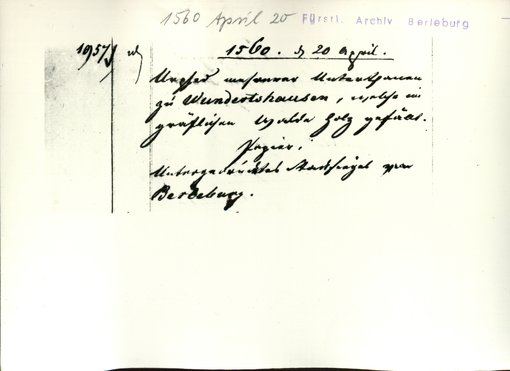 1560 April 20 Fürstl. Archiv Berleburg
1957
1560. d 20 April.
Urfhed mehrerer Unterthanen
zu Wundertshausen, welche im
gräflichen Walde Holz gefällt.
Papier;
Untergedrucktes Stadtsiegel von
Berleburg.